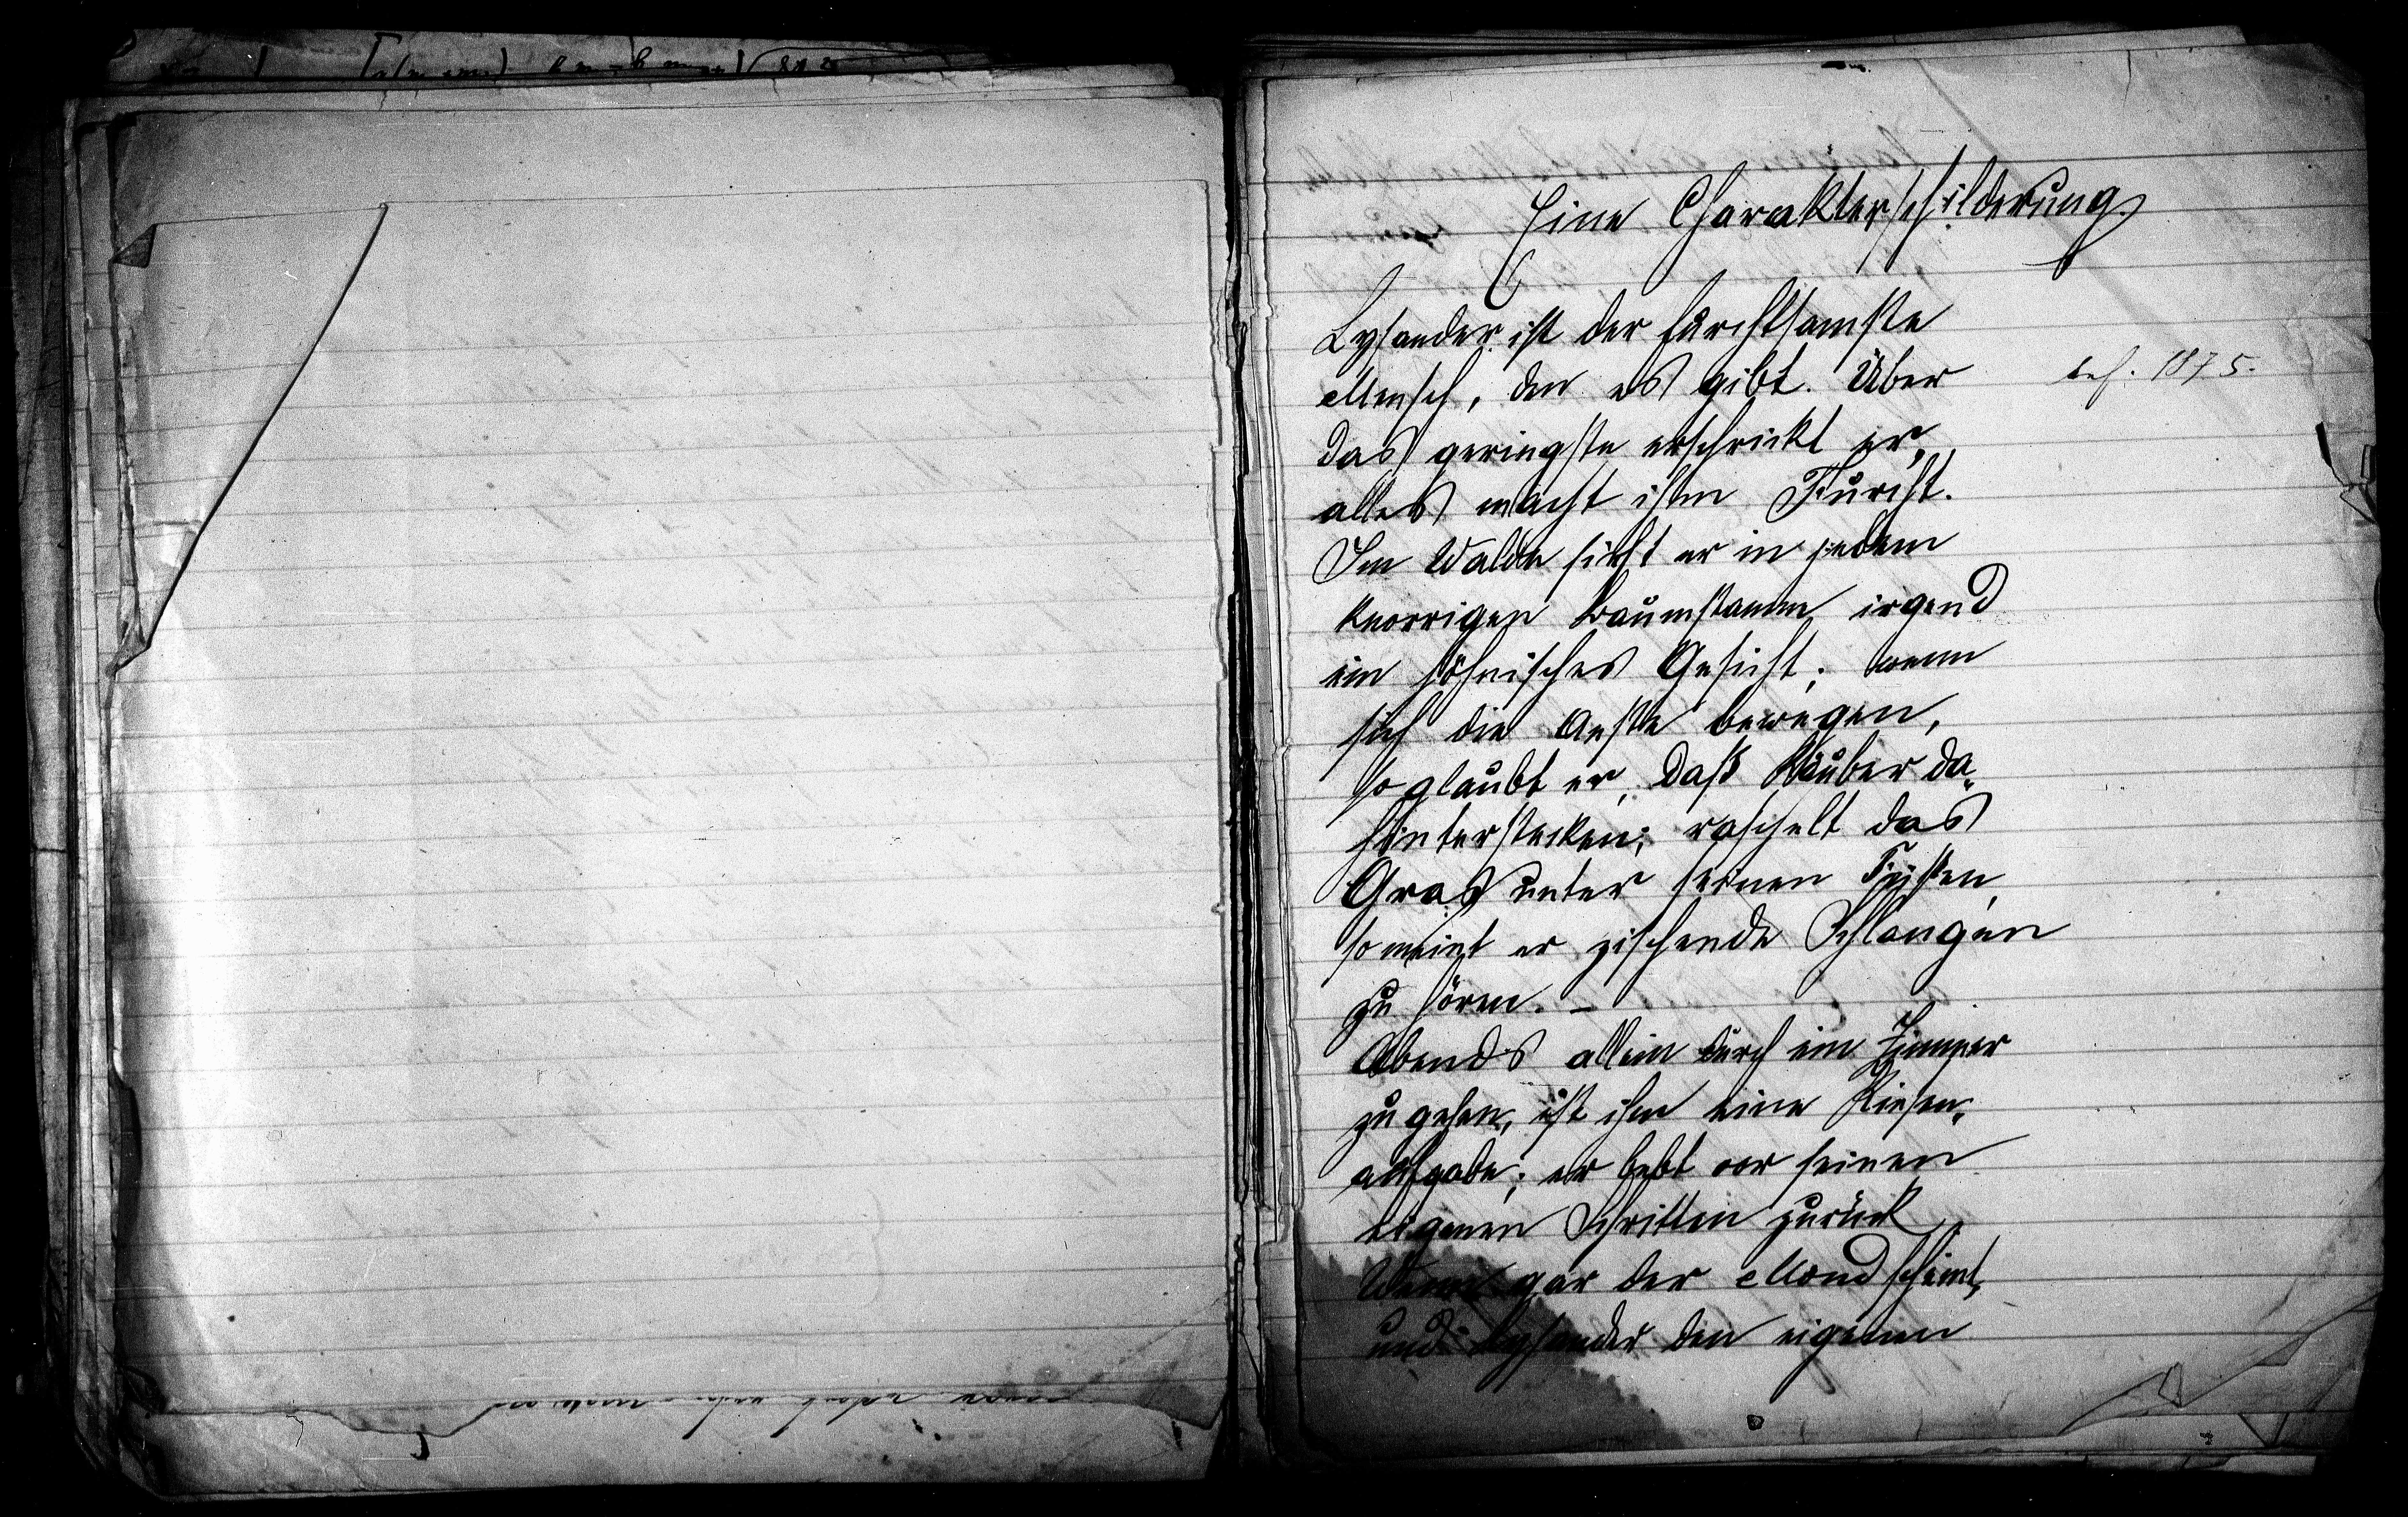 Eine Charakterschilderung
Lysander ist der furchtsamste
Mensch, den es gibt. Über
das geringste erschrickt er,
alles macht ihm Furcht.
Im Walde sieht er in jedem
knorrigen Baumstamm irgend
ein höhnisches Gesicht; wenn
sich die Aeste bewegen,
so glaubt er, daß Räuber da„
hinterstecken; raschelt das
Gras unter seinen Füßen,
so meint er zischende Schlangen
zu hören. –
Abends allein durch ein Zimmer
zu gehen, ist ihm eine Riesen„
aufgabe; er bebt vor seinen
eigenen Schritten zurück
Wenn gar der Mond scheint,
und Lysander den eigenen
1875.